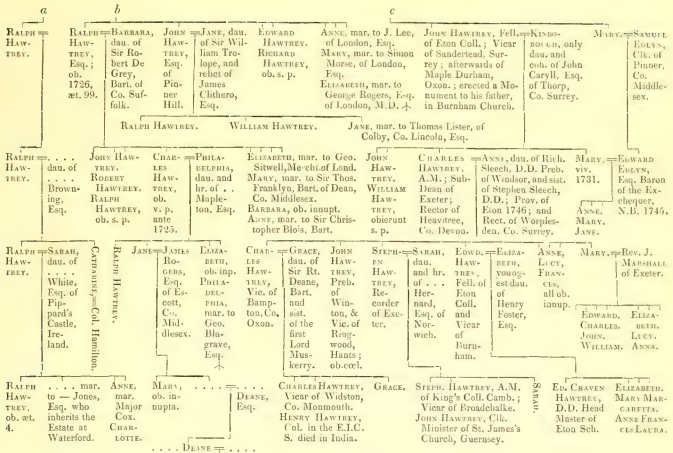 a b c
RALPH HAW- TREY.
RALPH HAW- TREY, Esq.; ob. 1726, æt. 99.
BARBARA, dau. of Sir Ro- bert De Grey, Bart. of Co. Suf- folk.
JOHN HAW- TREY, Esq. of Pin- ner Hill.
JANE, dau. of Sir Wil- liam Tro- lope, and relict of James Chithero, Esq.
EDWARD HAWTREY.
RICHARD HAWTREY, ob. s. p.
ANNE, mar. to J. Lee, of London, Esq.
MARY, mar. to Simon Morse, of London, Esq.
ELIZABETH, mar. to George Rogers, Esq. of London, M.D.
JOHN HAWTREY, Fell. of Eton Coll.; Vicar of Sanderstead, Sur- rey; afterwards of Maple Durham, Oxon.; erected a Mo- nument to his father, in Burnham Church.
KINBO- ROUGH, only dau. and coh. of John Caryll, Esq. of Thorp, Co. Surrey.
MARY.
SAMUEL EDLYN, Clk. of Pinner, Co. Middle- sex.
RALPH HAWTREY.
WILLIAM HAWTREY.
JANE, mar. to Thomas Lister, of Colby, Co. Lincoln, Esq.
RALPH HAW- TREY.
. . . . dau. of . . . . Brown- ing, Esq.
JOHN HAW- TREY.
ROBERT HAWTREY.
RALPH HAWTREY, ob. s. p.
CHAR- LES HAW- TREY, ob. v. p. ante 1725.
PHILA- DELPHIA, dau. and hr. of . . Maple- ton, Esq.
ELIZABETH, mar. to Geo. Sitwell, Mercht. of Lond.
MARY, mar. to Sir Thos. Franklyn, Bart. of Dean, Co. Middlesex.
BARBARA, ob. innupt.
ANNE, mar. to Sir Chris- topher Blois, Bart.
JOHN HAW- TREY.
WILLIAM HAW- TREY, obierunt s. p.
CHARLES HAWTREY, A.M.; Sub- Dean of Exeter; Rector of Heavitree, Co. Devon.
ANNE, dau. of Rich. Sleech, D.D. Preb. of Windsor, and sist. of Stephen Sleech, D.D.; Prov. of Eton 1746; and Rect. of Worples- den, Co. Surrey.
MARY, viv. 1731.
EDWARD EDLYN, Esq. Baron of the Ex- chequer, N.B. 1745.
ANNE.
MARY.
JANE.
RALPH HAW- TREY.
SARAH, dau. of . . . . White, Esq. of Pip- pard's Castle, Ire- land.
CATHARINE, = Col. Hamilton.
RALPH HAWTREY.
JANE
JAMES RO- GERS, Esq. of Es- cott, Co. Mid- dlesex.
ELIZA- BETH, ob. inp.
PHILA- DEL- PHIA, mar. to Geo. Bla- grave, Esq.
CHAR- LES HAW- TREY, Vic. of Bamp- ton, Co. Oxon.
GRACE, dau. of Sir Rt. Deane, Bart. and sist. of the first Lord Mus- kerry.
JOHN HAW- TREY, Preb. of Win- ton, & Vic. of Ring- wood, Hants; ob. cœl.
STEPH- EN HAW- TREY, Re- corder of Exe- ter.
SARAH, dau. and hr. of . . Her- nard Esq. of Nor- wich.
EDWD. HAW- TREY, Fell. of Eton and Vicar of Burn- ham.
ELIZA- BETH, young- est dau. of Henry Foster, Esq.
ANNE, LUCY, FRAN- CES, all ob. innup.
MARY
REV. J. MARSHALL of Exeter.
EDWARD.
CHARLES.
JOHN.
WILLIAM.
ELIZA- BETH.
LUCY.
ANNA.
RALPH HAW- TREY. ob. æt. 4.
. . . . mar. to — Jones, Esq. who inherits the Estate at Waterford.
ANNE, mar. Major Cox.
CHAR- LOTTE.
MARY, ob. in- nupta.
. . . .
DEANE, Esq.
. . . . DEANE = . . . .
CHARLES HAWTREY, Vicar of Widston, Co. Monmouth.
HENRY HAWTREY, Col. in the E.I.C. S. died in India.
GRACE.
STEPH. HAWTREY, A.M. of King's Coll. Camb.; Vicar of Broadchalke.
JOHN HAWTREY, Clk. Minister of St. James's Church, Guernsey.
SARAH.
ED. CRAVEN HAWTREY, D.D. Head Master of Eton Sch.
ELIZABETH.
MARY MAR- GARETTA.
ANNE FRAN- CES LAURA.